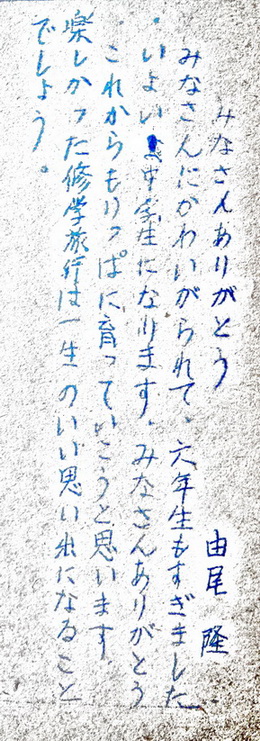 みなさんありがとう
由尾 隆
みなさんにかわいがられて、六年生もすぎました
。いよいよ中学生になります。みなさんありがとう
これからもりっぱに育っていこうと思います
楽しかった修学旅行は一生のいい思い出になること
でしょう。